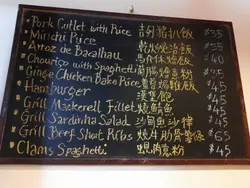 Pork Cutlet with Rice 吉列豬扒飯 $35
Minchi Rice $35
Arroz de Bacalhau 飯 $40
Chourico with Spaghetti 意粉 $35
Ginge Chicken Bake Rice 飯 $45
Hamburger 漢堡飽 $45
Grill Mackerell Fillet 燒鯖魚 $45
Grill Sardinha Salad 沙甸魚沙律 $45
Grill Beef Short Ribs 燒牛肋骨 $65
Clams Spaghetti 蜆肉意粉 $45